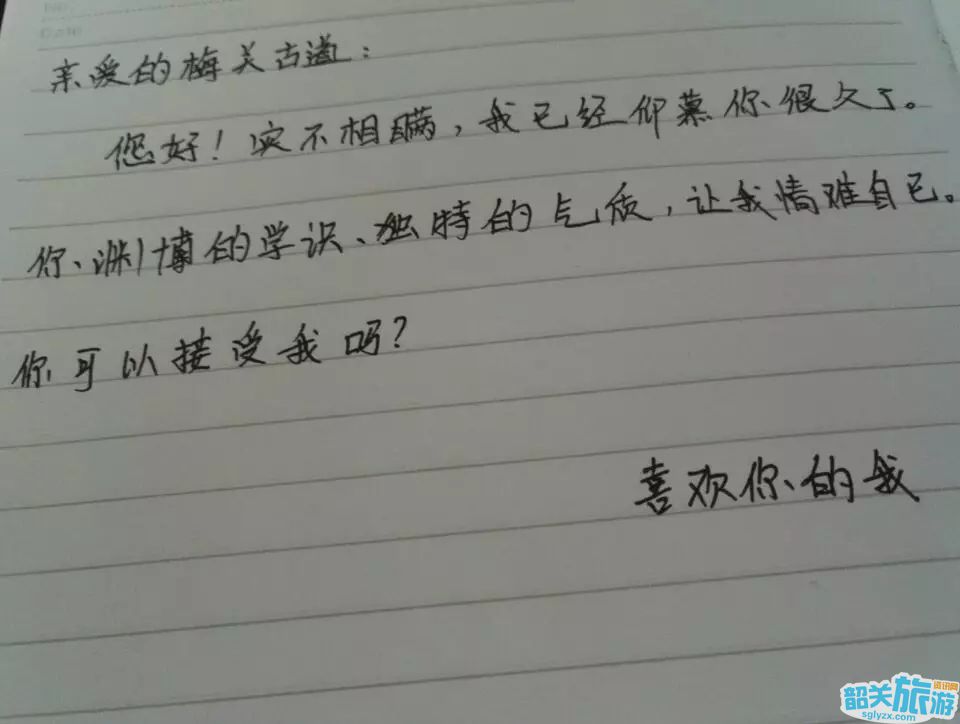 亲爱的梅关古道：
您好！实不相瞒，我已经仰慕你很久了。
你渊博的学识、独特的气质，让我情难自已。
你可以接受我吗？
喜欢你的我
韶关旅游资讯网
sglyzx.com